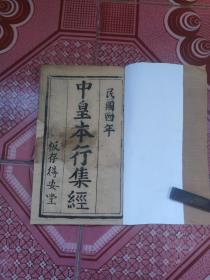 民國四年
中皇本行集經
板存得安堂